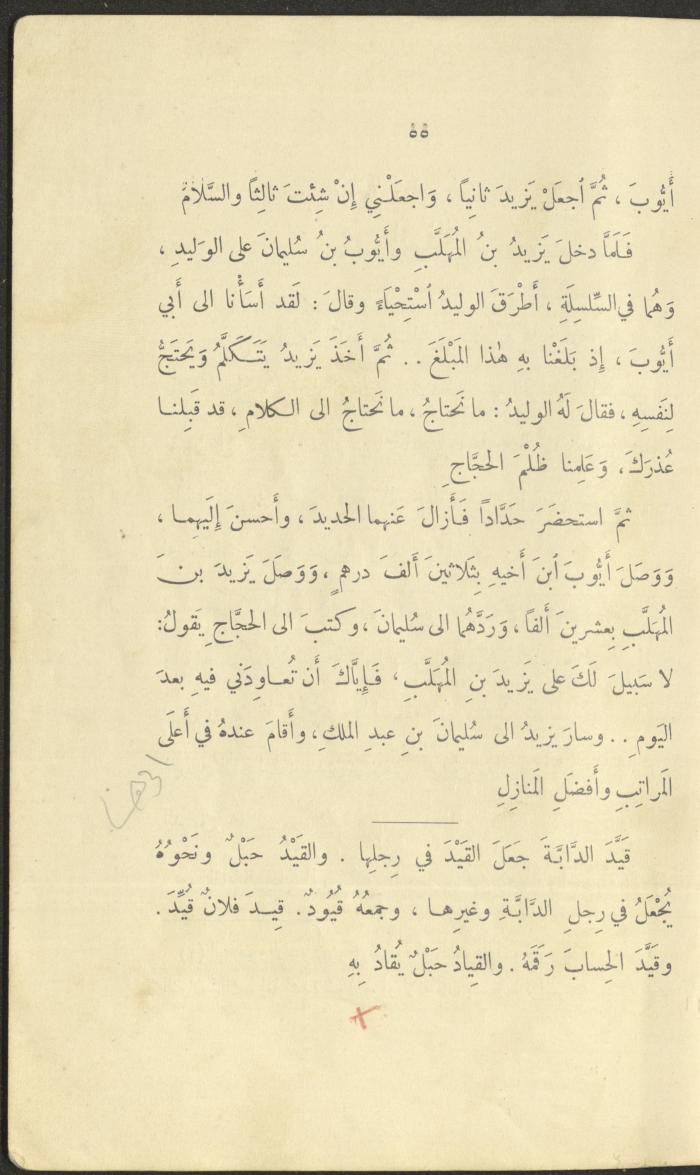 ٥٥
أَيُّوبَ ، ثُمَّ ٱجعَلْ يَزيدَ ثانِياً ، وَاجعَلْنِي إِنْ شِئتَ ثالِثاً والسَّلامَ
فَلَمَّا دخلَ يَزيدُ بنُ المُهلَّبِ وأَيُّوبُ بنُ سُليمانَ على الوَليدِ ،
وَهُما في السِّلسِلَةِ ، أَطْرَقَ الوليدُ ٱسْتِحْيَاءً وقالَ : لَقد أَسَأْنا الى أَبي
أَيُّوبَ ، إِذ بَلَغْنا بهِ هٰذا المَبْلَغَ . . ثُمَّ أَخَذَ يَزيدُ يَتَكَلَّمُ وَيَحتَجُّ
لِنَفسِهِ ، فقالَ لَهُ الوليدُ : ما نَحتاجُ ، ما نَحتاجُ الى الكلامِ ، قد قَبِلنا
عُذرَكَ ، وَعَلِمنا ظُلْمَ الحجَّاجِ
ثمَّ استحضَرَ حَدَّاداً فَأَزالَ عَنهما الحديدَ ، وأَحسنَ إِلَيهِما ،
وَوَصَلَ أَيُّوبَ ٱبنَ أَخيهِ بِثَلاثينَ أَلفَ درهمٍ ، وَوَصَلَ يَزيدَ بنَ
المُهلَّبِ بِعشرينَ أَلفاً ، وَرَدَّهُما الى سُليمانَ ، وكتبَ الى الحجَّاجِ يَقولُ :
لا سَبيلَ لَكَ على يَزيدَ بنِ المُهلَّبِ ، فَإِيَّاكَ أَن تُعاوِدَني فيهِ بعدَ
اليَومِ . . وسارَ يزيدُ الى سُليمانَ بنِ عبدِ الملكِ ، وأَقامَ عندهُ في أَعلَى
المَراتِبِ وأَفضَلِ المَنازِلِ
قَيَّدَ الدَّابَّةَ جَعَلَ القَيْدَ في رِجلِها . والقَيْدُ حَبْلٌ ونَحْوُهُ
يُجْعَلُ في رِجلِ الدَّابَّةِ وغيرِها ، وجمعُهُ قُيُودٌ . قِيدَ فلانٌ قُيِّدَ .
وقَيَّدَ الحِسابَ رَقَّمَهُ . والقِيادُ حَبْلٌ يُقادُ بِهِ